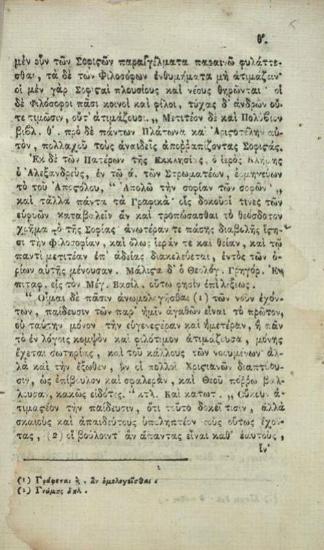 θ'.
μὲν οὖν τῶν Σοφιςῶν παραγγέλματα παραινῶ φυλάττε-
σθαι, τὰ δὲ τῶν Φιλοσόφων ἐνθυμήματα μὴ ἀτιμάζειν·
οἱ μὲν γὰρ Σοφιςαὶ πλουσίους καὶ νέους θηρῶνται· οἱ
δὲ Φιλόσοφοι πᾶσι κοινοὶ καὶ φίλοι, τύχας δ' ἀνδρῶν οὔ-
τε τιμῶσιν, οὔτ' ἀτιμάζουσι." Μετιτέον δὲ καὶ Πολύβιον
βιβλ. θ'. πρὸ δὲ πάντων Πλάτωνα καὶ Ἀριςοτέλην αὐ-
τὸν, πολλαχοῦ τοὺς ἀναιδεῖς ἀποῤῥαπίζοντας Σοφιςάς.
Ἐκ δὲ τῶν Πατέρων τῆς Ἐκκλησίας, ὁ ἱερὸς Κλήμης
ὁ Ἀλεξανδρεὺς, ἐν τῷ ά. τῶν Στρωματέων, ἑρμηνεύων
τὸ τοῦ Ἀποςόλου, "Ἀπολῶ τὴν σοφίαν τῶν σοφῶν"
καὶ τἄλλα πάντα τὰ Γραφικά· οἷς δοκοῦσί τινες τῶν
εὐφυῶν καταβαλεῖν ἂν καὶ τροπώσασθαι τὸ θεόσδοτον
χρῆμα τῆς Σοφίας· ἀνωτέραν τε πάσης διαβολῆς ἵςη-
σι τὴν Φιλοσοφίαν, καὶ ὅλως ἱεράν τε καὶ θείαν, καὶ τῷ
παντὶ μετιτέαν ἐπ' ἀδείας διακελεύεται, ἐντὸς τῶν ὁ-
ρίων αὐτῆς μένουσαν. Μάλιςα δ' ὁ Θεολόγ. Γρηγόρ. Ἐν
ἐπιταφ. εἰς τὸν Μέγ. Βασίλ. οὕτω φησὶν ἐπὶ λέξεως.
"Οἶμαι δὲ πᾶσιν ἀνωμολογῆσθαι (1) τῶν νοῦν ἐχόν-
των, παίδευσιν τῶν παρ' ἡμῖν ἀγαθῶν εἶναι τὸ πρῶτον,
οὐ ταύτην μόνον τὴν εὐγενεςέραν καὶ ἡμετέραν, ἣ πᾶν
τὸ ἐν λόγοις κομψὸν καὶ φιλότιμον ἀτιμάζουσα, μόνης
ἔχεται σωτηρίας, καὶ τοῦ κάλλους τῶν νοουμένων· ἀλ-
λὰ καὶ τὴν ἔξωθεν, ἣν οἱ πολλοὶ Χριςιανῶν διαπτύου-
σιν, ὡς ἐπίβουλον καὶ σφαλερὰν, καὶ Θεοῦ πόῤῥω βάλ-
λουσαν, κακῶς εἰδότες." κτλ. Καὶ κατωτ. "Οὔκουν
ἀτιμαςέον τὴν παίδευσιν, ὅτι τοῦτο δοκεῖ τισιν, ἀλλὰ
σκαιοὺς καὶ ἀπαιδεύτους ὑποληπτέον τοὺς οὕτως ἔχον-
τας, (2) οἳ βούλοιντ' ἂν ἅπαντας εἶναι καθ' ἑαυτοὺς,
ἵν'
(1) Γράφεται ἢ. Ἂν ὁμολογεῖσθαι.
(2) Γνώμης δηλ.